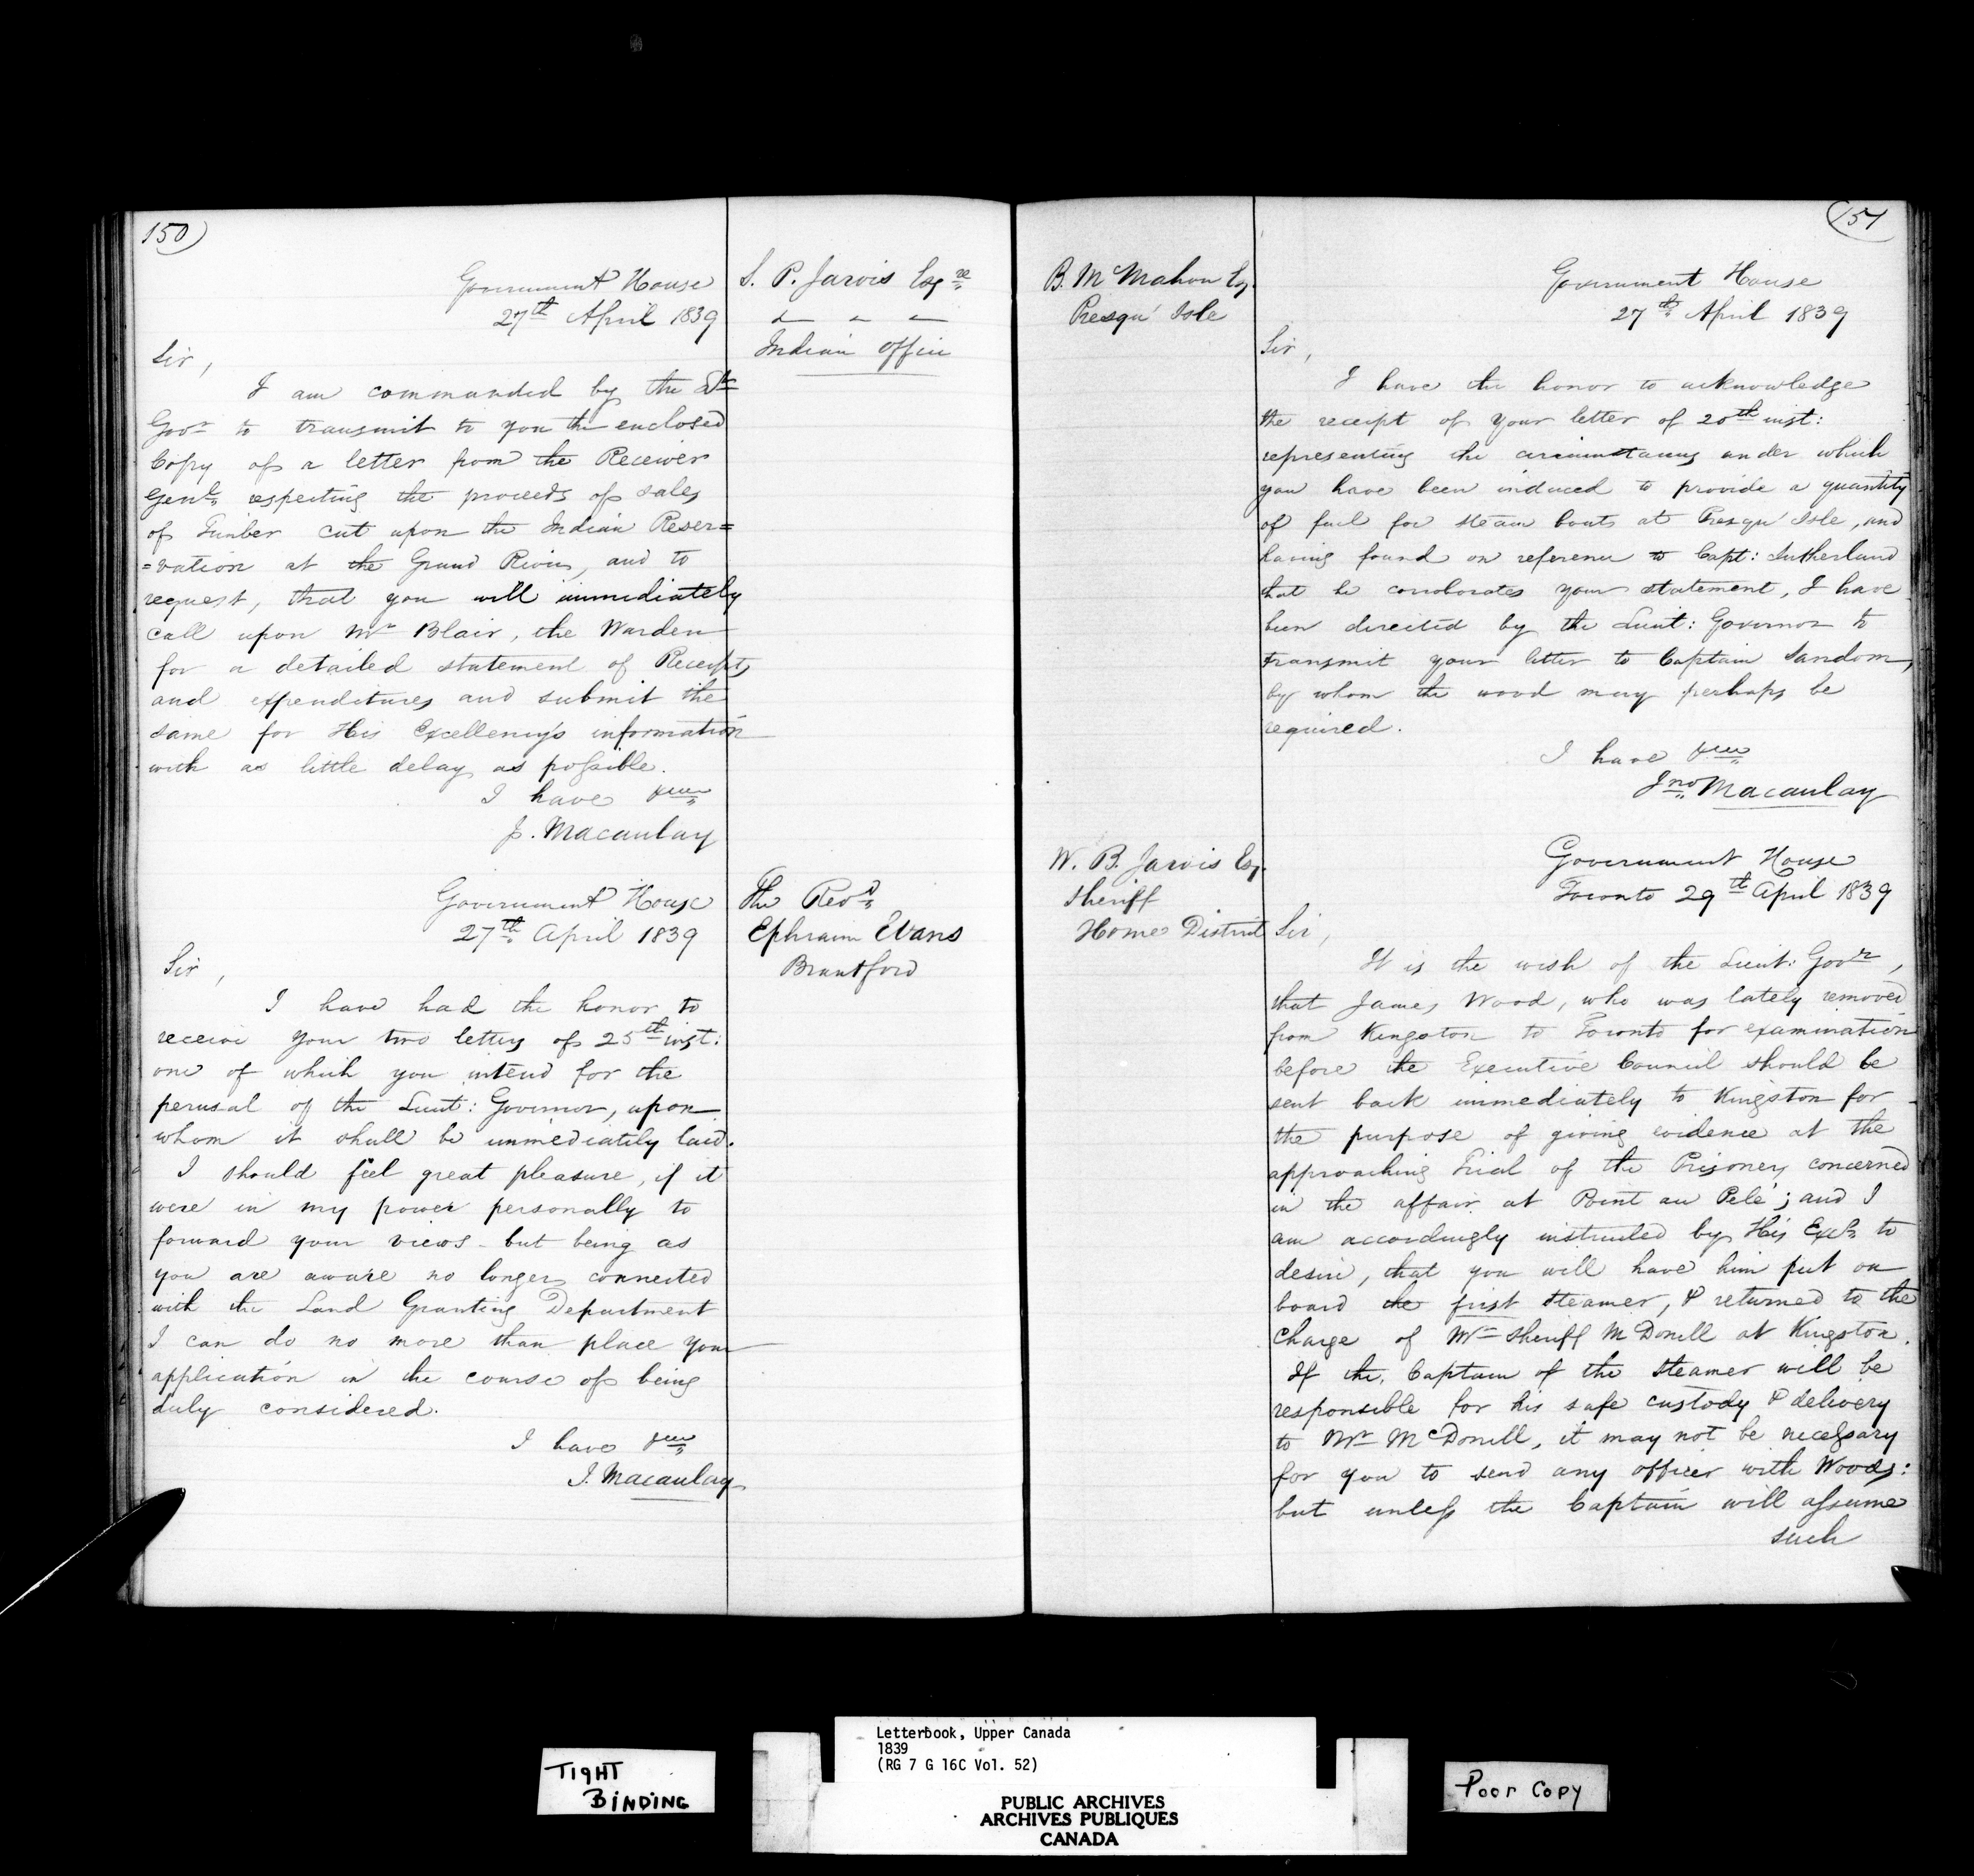 150)
S. P. Jarvis Esqre
" " "
Indian Office
Government House
27th April 1839
Sir,
I am commanded by the Lt
Govr to transmit to you the enclosed
Copy of a letter from the Receiver
Genl respecting the proceeds of sales
of Timber cut upon the Indian Reser=
=vation at the Grand River, and to
request, that you will immediately
call upon Mr Blair, the Warden
for a detailed statement of Receipts
and expenditures and submit the
same for His Excellency's information
with as little delay as possible.
I have &ca
J. Macaulay
The Revd
Ephraim Evans
Brantford
Government House
27th April 1839
Sir,
I have had the honor to
receive your two letters of 25th inst:
one of which you intend for the
perusal of the Lieut: Governor, upon
whom it shall be immediately laid.
I should feel great pleasure, if it
were in my power personally to
forward your views - but being as
you are aware no longer connected
with the Land Granting Department
I can do no more than place your
application in the course of being
duly considered.
I have &ca
J. Macaulay
151
B. McMahon Esq.
Presqu' Isle
Government House
27th April 1839
Sir,
I have the honor to acknowledge
the receipt of your letter of 20th inst:
representing the circumstances under which
you have been induced to provide a quantity
of fuel for steam boats at Presqu' Isle, and
having found on reference to Capt: Sutherland
that he corroborates your statement, I have
been directed by the Lieut: Governor to
transmit your letter to Captain Sandom,
by whom the wood may perhaps be
required.
I have &ca
Jno Macaulay
W. B. Jarvis Esq.
Sheriff
Home District
Government House
Toronto 29th April 1839
Sir,
It is the wish of the Lieut: Govr,
that James Wood, who was lately removed
from Kingston to Toronto for examination
before the Executive Council should be
sent back immediately to Kingston for
the purpose of giving evidence at the
approaching Trial of the Prisoners concerned
in the affair at Point au Pelé; and I
am accordingly instructed by His Excy to
desire, that you will have him put on
board the first steamer, & returned to the
charge of Mr Sheriff McDonell at Kingston.
If the Captain of the steamer will be
responsible for his safe custody & delivery
to Mr McDonell, it may not be necessary
for you to send any officer with Woods:
but unless the Captain will assume
such
TIGHT
BINDING
Letterbook, Upper Canada
1839
(RG 7 G 16C Vol. 52)
PUBLIC ARCHIVES
ARCHIVES PUBLIQUES
CANADA
Poor Copy